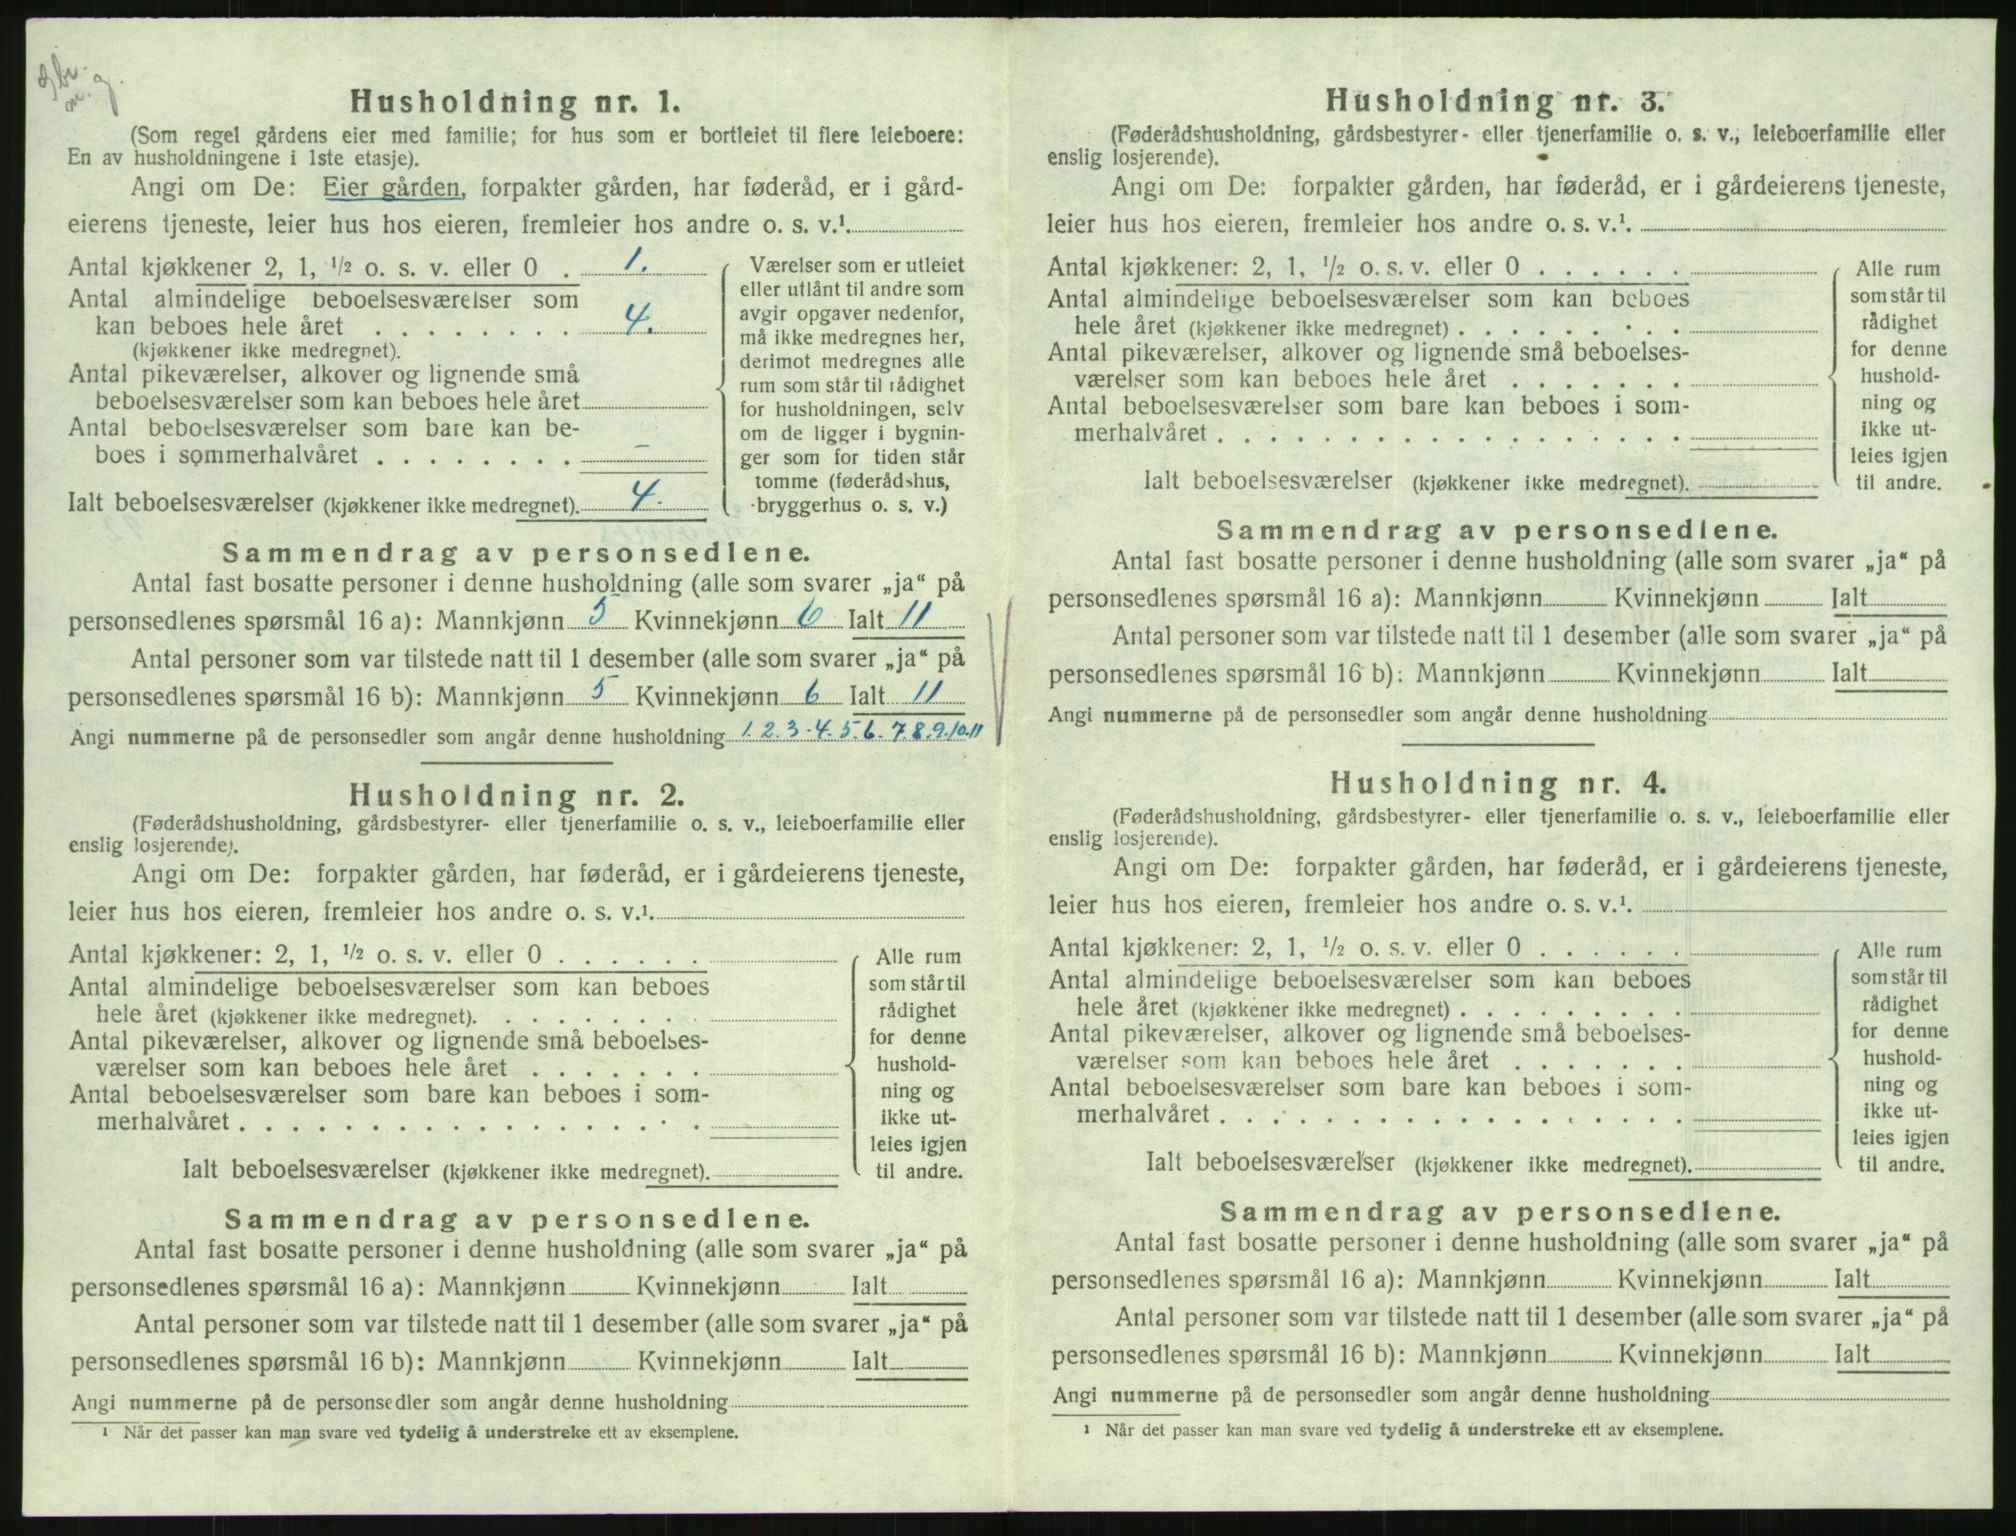 Husholdning nr. 1.
(Som regel gårdens eier med familie; for hus som er bortleiet til flere leieboere:
En av husholdningene i 1ste etasje).
Angi om De: Eier gården, forpakter gården, har føderåd, er i gård-
eierens tjeneste, leier hus hos eieren, fremleier hos andre o. s. v.¹.
Antal kjøkkener 2, 1, ½ o. s. v. eller 0 . 1.
Antal almindelige beboelsesværelser som
kan beboes hele året . . . . . . . . . 4.
(kjøkkener ikke medregnet).
Antal pikeværelser, alkover og lignende små
beboelsesværelser som kan beboes hele året
Antal beboelsesværelser som bare kan be-
boes i sommerhalvåret . . . . . . . . –
Ialt beboelsesværelser (kjøkkener ikke medregnet). 4.
Værelser som er utleiet
eller utlånt til andre som
avgir opgaver nedenfor,
må ikke medregnes her,
derimot medregnes alle
rum som står til rådighet
for husholdningen, selv
om de ligger i bygnin-
ger som for tiden står
tomme (føderådshus,
bryggerhus o. s. v.)
Sammendrag av personsedlene.
Antal fast bosatte personer i denne husholdning (alle som svarer „ja“ på
personsedlenes spørsmål 16 a): Mannkjønn 5 Kvinnekjønn 6 Ialt 11
Antal personer som var tilstede natt til 1 desember (alle som svarer „ja“ på
personsedlenes spørsmål 16 b): Mannkjønn 5 Kvinnekjønn 6 Ialt 11
Angi nummerne på de personsedler som angår denne husholdning 1. 2. 3. 4. 5. 6. 7. 8. 9. 10. 11
Husholdning nr. 2.
(Føderådshusholdning, gårdsbestyrer- eller tjenerfamilie o. s. v., leieboerfamilie eller
enslig losjerende).
Angi om De: forpakter gården, har føderåd, er i gårdeierens tjeneste,
leier hus hos eieren, fremleier hos andre o. s. v.¹.
Antal kjøkkener: 2, 1, ½ o. s. v. eller 0 . . . . . .
Antal almindelige beboelsesværelser som kan beboes
hele året (kjøkkener ikke medregnet). . . . . . . . .
Antal pikeværelser, alkover og lignende små beboelses-
værelser som kan beboes hele året . . . . . . .
Antal beboelsesværelser som bare kan beboes i som-
merhalvåret . . . . . . . . . . . . . . . . . .
Ialt beboelsesværelser (kjøkkener ikke medregnet).
Alle rum
som står til
rådighet
for denne
hushold-
ning og
ikke ut-
leies igjen
til andre.
Sammendrag av personsedlene.
Antal fast bosatte personer i denne husholdning (alle som svarer „ja“ på
personsedlenes spørsmål 16 a): Mannkjønn Kvinnekjønn Ialt
Antal personer som var tilstede natt til 1 desember (alle som svarer „ja“ på
personsedlenes spørsmål 16 b): Mannkjønn Kvinnekjønn Ialt
Angi nummerne på de personsedler som angår denne husholdning
¹ Når det passer kan man svare ved tydelig å understreke ett av eksemplene.
Husholdning nr. 3.
(Føderådshusholdning, gårdsbestyrer- eller tjenerfamilie o. s. v., leieboerfamilie eller
enslig losjerende).
Angi om De: forpakter gården, har føderåd, er i gårdeierens tjeneste,
leier hus hos eieren, fremleier hos andre o. s. v.¹.
Antal kjøkkener: 2, 1, ½ o. s. v. eller 0 . . . . . .
Antal almindelige beboelsesværelser som kan beboes
hele året (kjøkkener ikke medregnet) . . . . . . . . .
Antal pikeværelser, alkover og lignende små beboelses-
værelser som kan beboes hele året . . . . . . .
Antal beboelsesværelser som bare kan beboes i som-
merhalvåret . . . . . . . . . . . . . . . . . .
Ialt beboelsesværelser (kjøkkener ikke medregnet).
Alle rum
som står til
rådighet
for denne
hushold-
ning og
ikke ut-
leies igjen
til andre.
Sammendrag av personsedlene.
Antal fast bosatte personer i denne husholdning (alle som svarer „ja“ på
personsedlenes spørsmål 16 a): Mannkjønn Kvinnekjønn Ialt
Antal personer som var tilstede natt til 1 desember (alle som svarer „ja“ på
personsedlenes spørsmål 16 b): Mannkjønn Kvinnekjønn Ialt
Angi nummerne på de personsedler som angår denne husholdning
Husholdning nr. 4.
(Føderådshusholdning, gårdsbestyrer- eller tjenerfamilie o. s. v., leieboerfamilie eller
enslig losjerende).
Angi om De: forpakter gården, har føderåd, er i gårdeierens tjeneste,
leier hus hos eieren, fremleier hos andre o. s. v.¹.
Antal kjøkkener: 2, 1, ½ o. s. v. eller 0 . . . . . .
Antal almindelige beboelsesværelser som kan beboes
hele året (kjøkkener ikke medregnet) . . . . . . . . .
Antal pikeværelser, alkover og lignende små beboelses-
værelser som kan beboes hele året . . . . . . .
Antal beboelsesværelser som bare kan beboes i som-
merhalvåret . . . . . . . . . . . . . . . . . .
Ialt beboelsesværelser (kjøkkener ikke medregnet).
Alle rum
som står til
rådighet
for denne
hushold-
ning og
ikke ut-
leies igjen
til andre.
Sammendrag av personsedlene.
Antal fast bosatte personer i denne husholdning (alle som svarer „ja“ på
personsedlenes spørsmål 16 a): Mannkjønn Kvinnekjønn Ialt
Antal personer som var tilstede natt til 1 desember (alle som svarer „ja“ på
personsedlenes spørsmål 16 b): Mannkjønn Kvinnekjønn Ialt
Angi nummerne på de personsedler som angår denne husholdning
¹ Når det passer kan man svare ved tydelig å understreke ett av eksemplene.